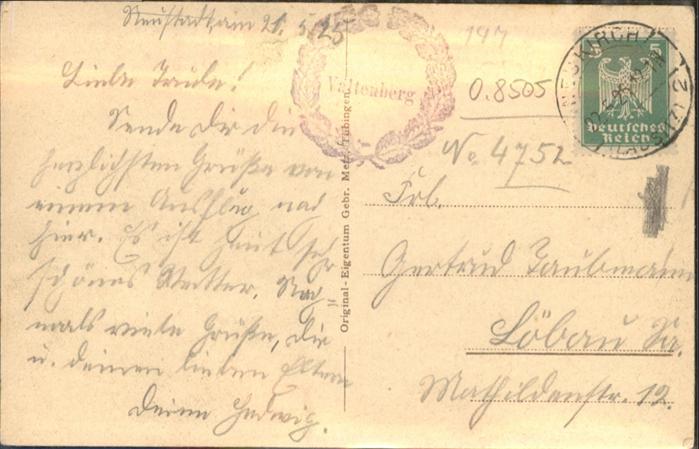 Neustadt am 21. 5. 25
Liebe Trude!
Sende Dir die
herzlichsten Grüße von
einem Ausflug nach
hier. Es ist heut sehr
schönes Wetter. Noch-
mals viele Grüße, Dir
u. deinen lieben Eltern
Deine Hedwig.
Valtenberg
Original-Eigentum Gebr. Metz, Tübingen
197
0.8505
No 4752
NEUKIRCH
(LAUSITZ)
5
Deutsches
Reich
Frl.
Gertrud Taubmann
Löbau Sa.
Mathildenstr. 12.